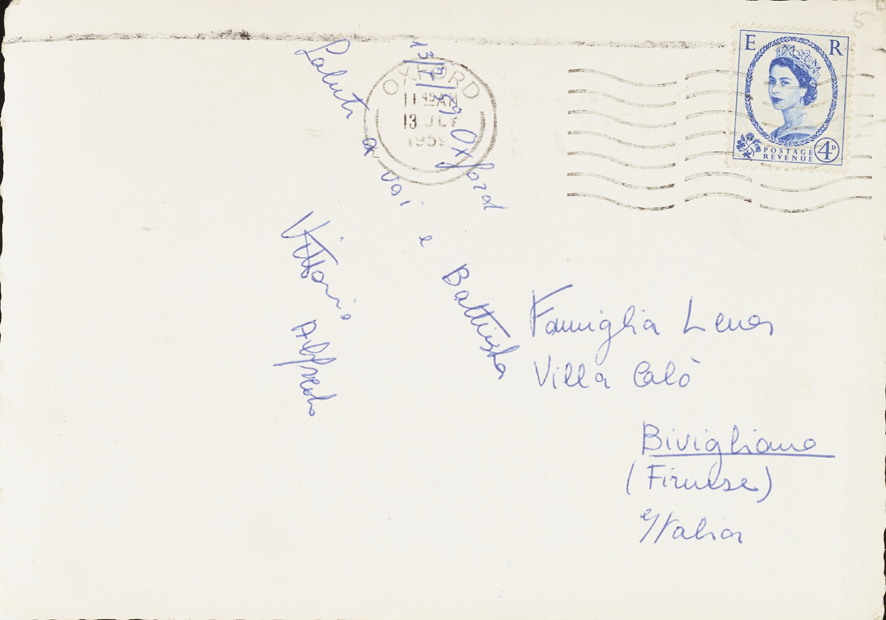 E R
POSTAGE
REVENUE
4D
OXFORD
11 45 AM
13 JLY
13/7/59 Oxford
Saluti a voi e Battista
Vittorio
Alfredo
Famiglia Lena
Villa Calò
Bivigliano
(Firenze)
Italia
5